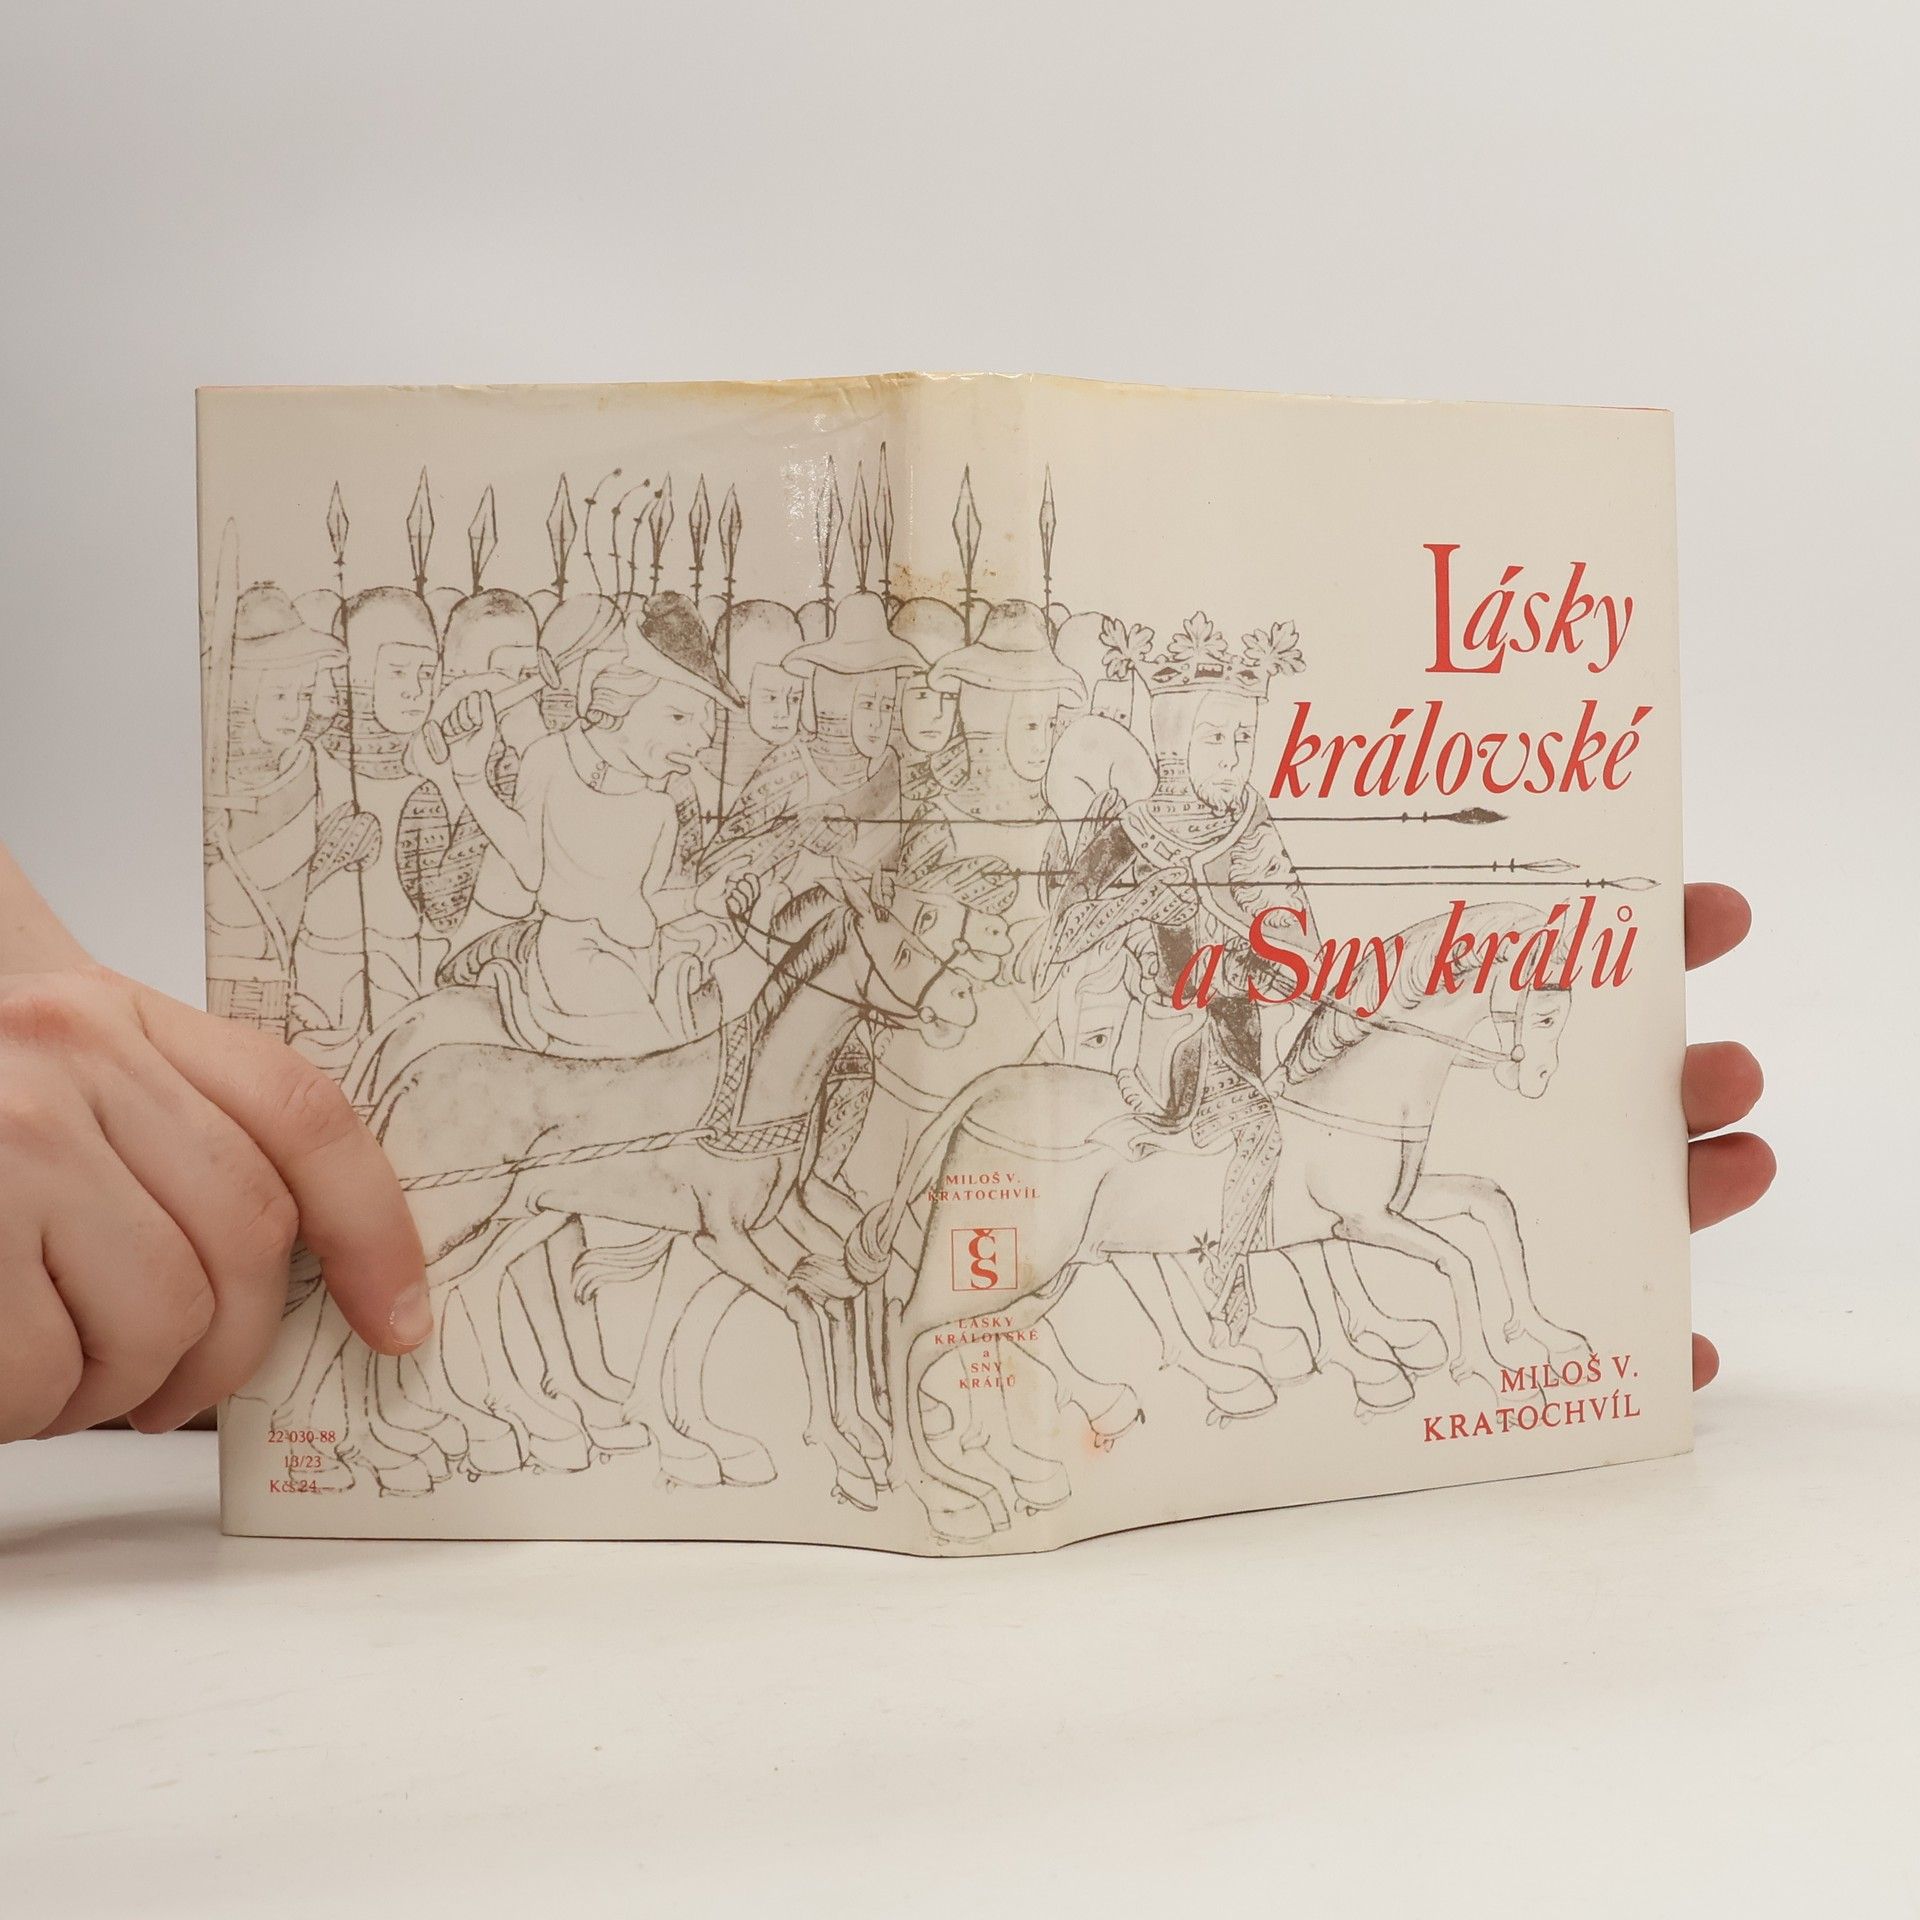 Lásky
královské
a Sny králů
MILOŠ V.
KRATOCHVÍL
MILOŠ V.
KRATOCHVÍL
Č
S
LÁSKY
KRÁLOVSKÉ
a
SNY
KRÁLŮ
22-030-88
13/23
Kčs 24,–